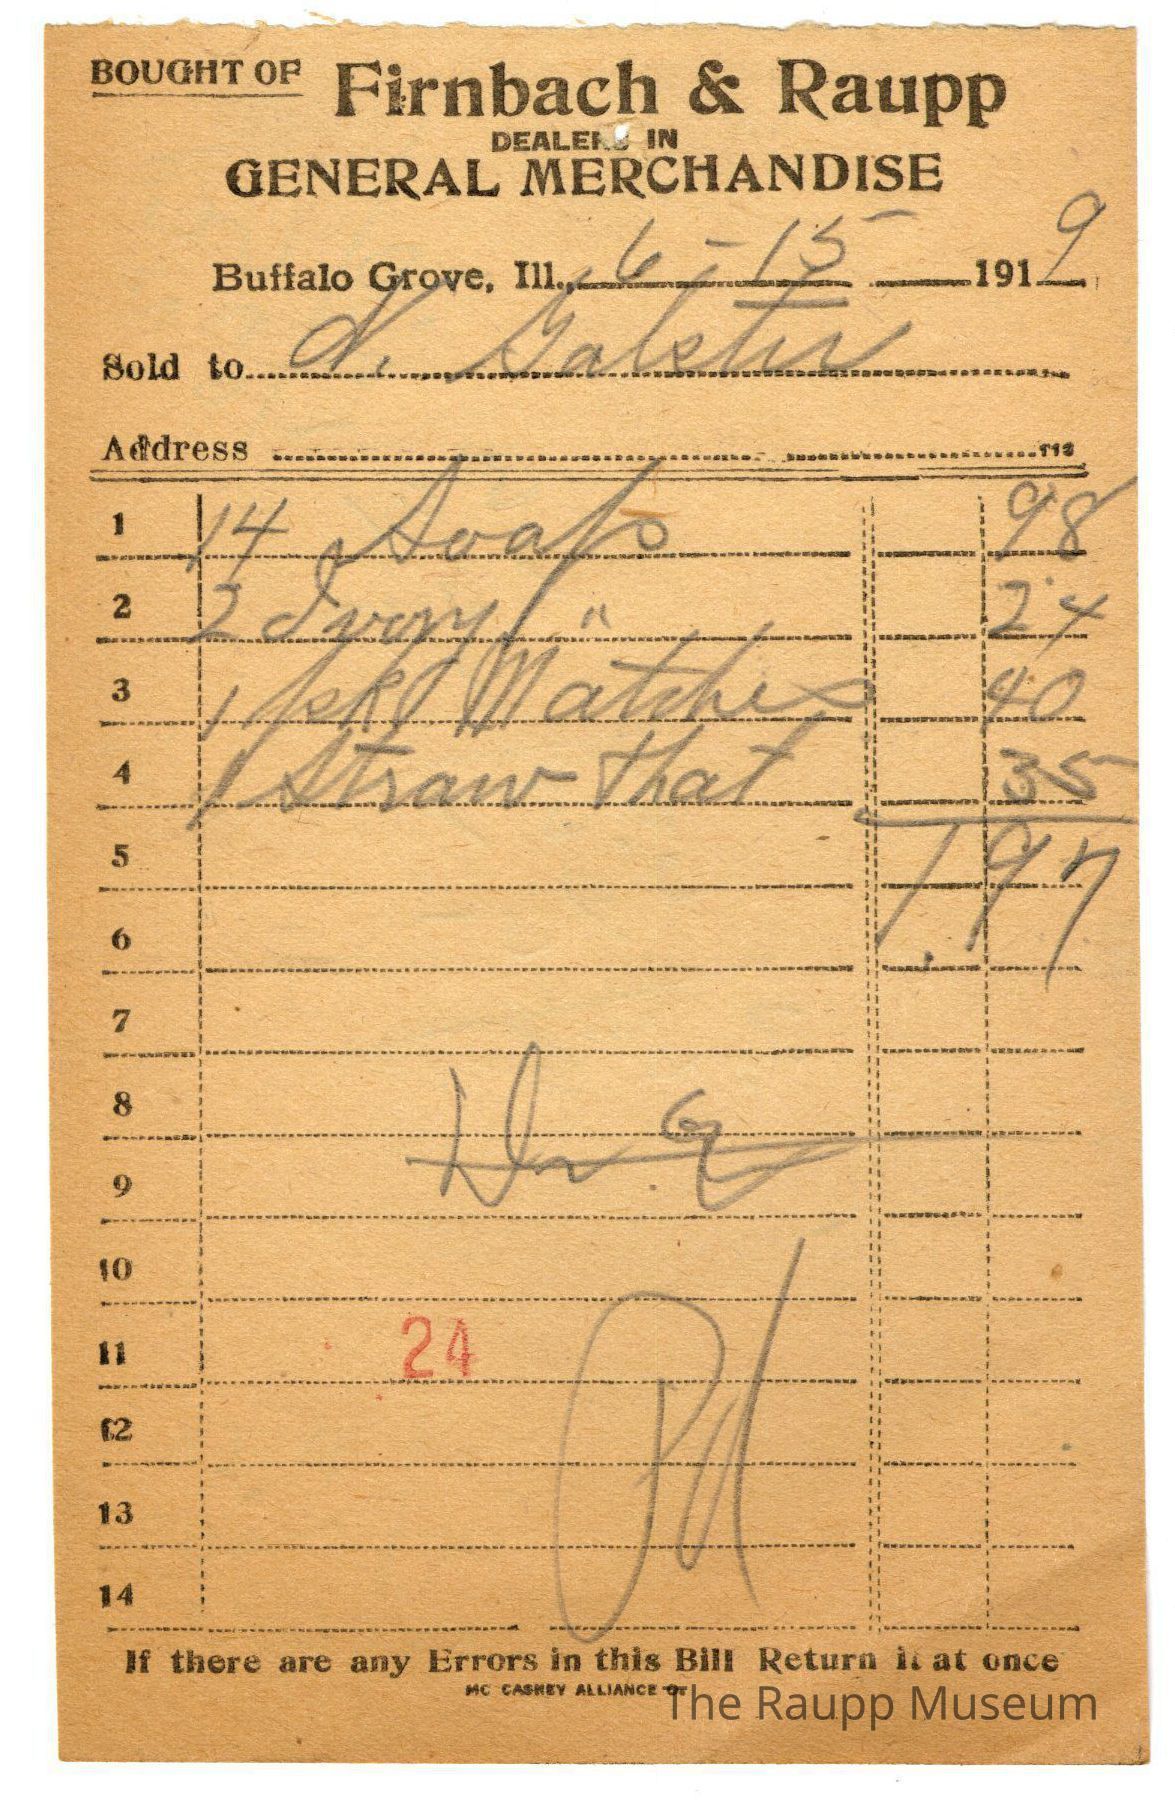 BOUGHT OF Firnbach & Raupp
DEALERS IN
GENERAL MERCHANDISE
Buffalo Grove, Ill., 6-15 1919
Sold to N. Galster
Address
1 14 Soap 98
2 2 Ivory " 24
3 1 pkg Matches 40
4 1 Straw Hat 35
5 1.97
6
7
8
9
10
11 24
12
13 Pd
14
If there are any Errors in this Bill Return it at once
MC CASKEY ALLIANCE O.
The Raupp Museum